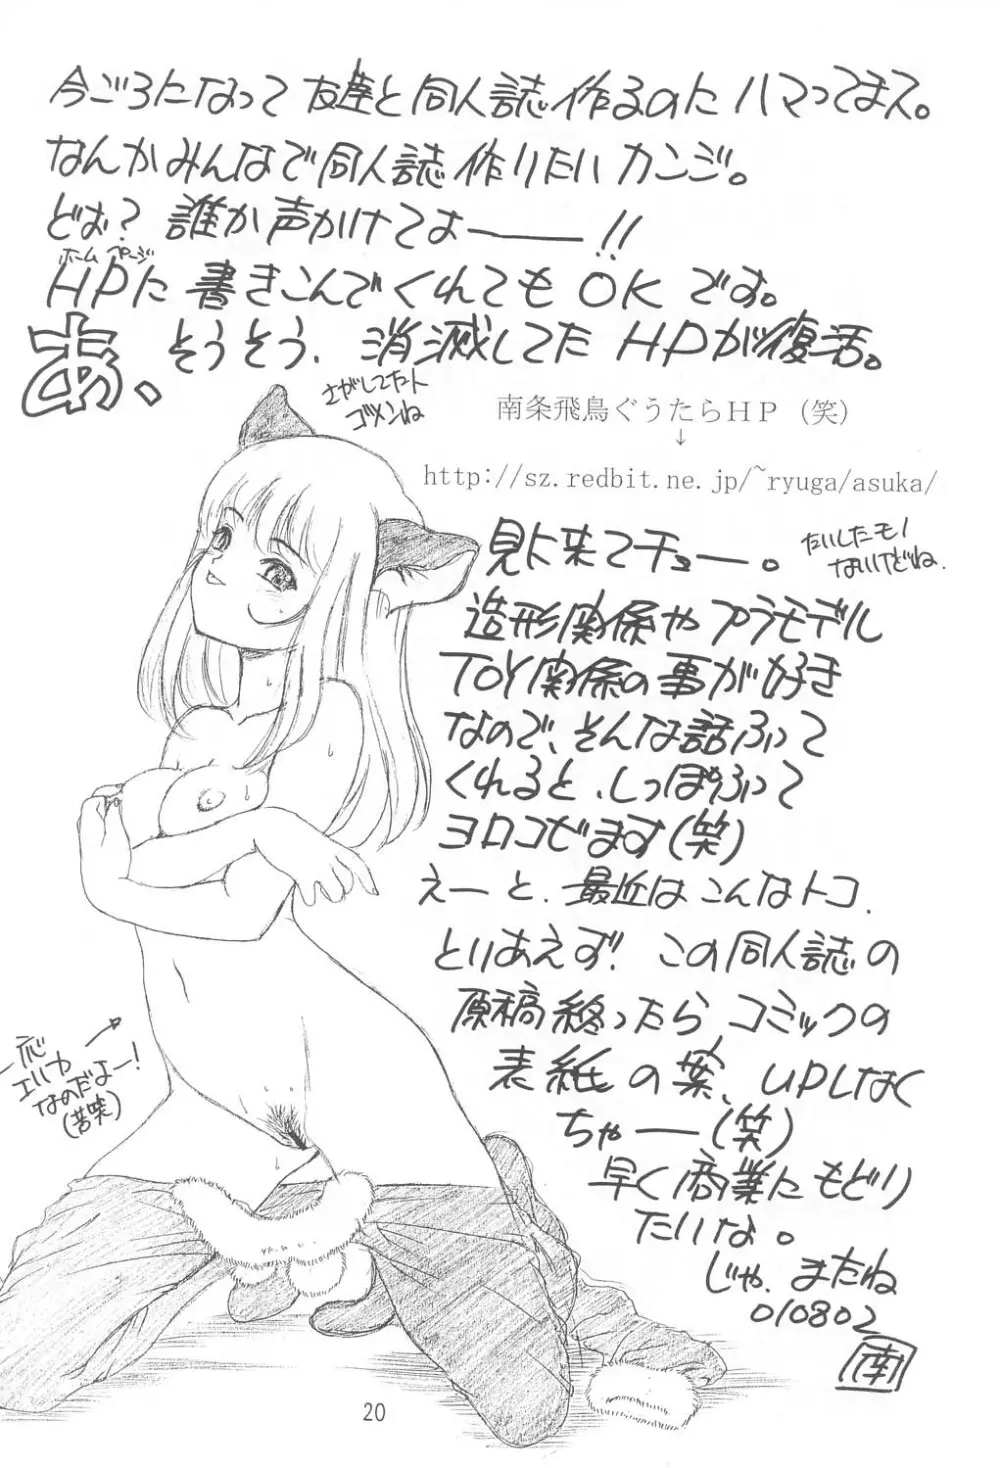 今ごろになって友達と同人誌作るのにハマってます。
なんかみんなで同人誌作りたいカンジ。
どぉ?誰か声かけてよーー!!
ホームページ
HPに書きこんでくれてもOKです。
あ、そうそう、消滅してたHPが復活。
さがしてた人
ゴメンね
南条飛鳥ぐうたらHP(笑)
↓
http://sz.redbit.ne.jp/~ryuga/asuka/
見に来てチョー。
たいしたモノ
ないけどね.
造形関係やプラモデル
TOY関係の事が好き
なので、そんな話ふって
くれると、しっぽふって
ヨロコビます(笑)
えーと、最近はこんなトコ.
とりあえず!この同人誌の
原稿終ったら、コミックの
表紙の案、UPしなく
ちゃー(笑)
早く商業にもどり
たいな。
じゃ、またね
010802
南
一応
エルカ
なのだよー!
(苦笑)
20